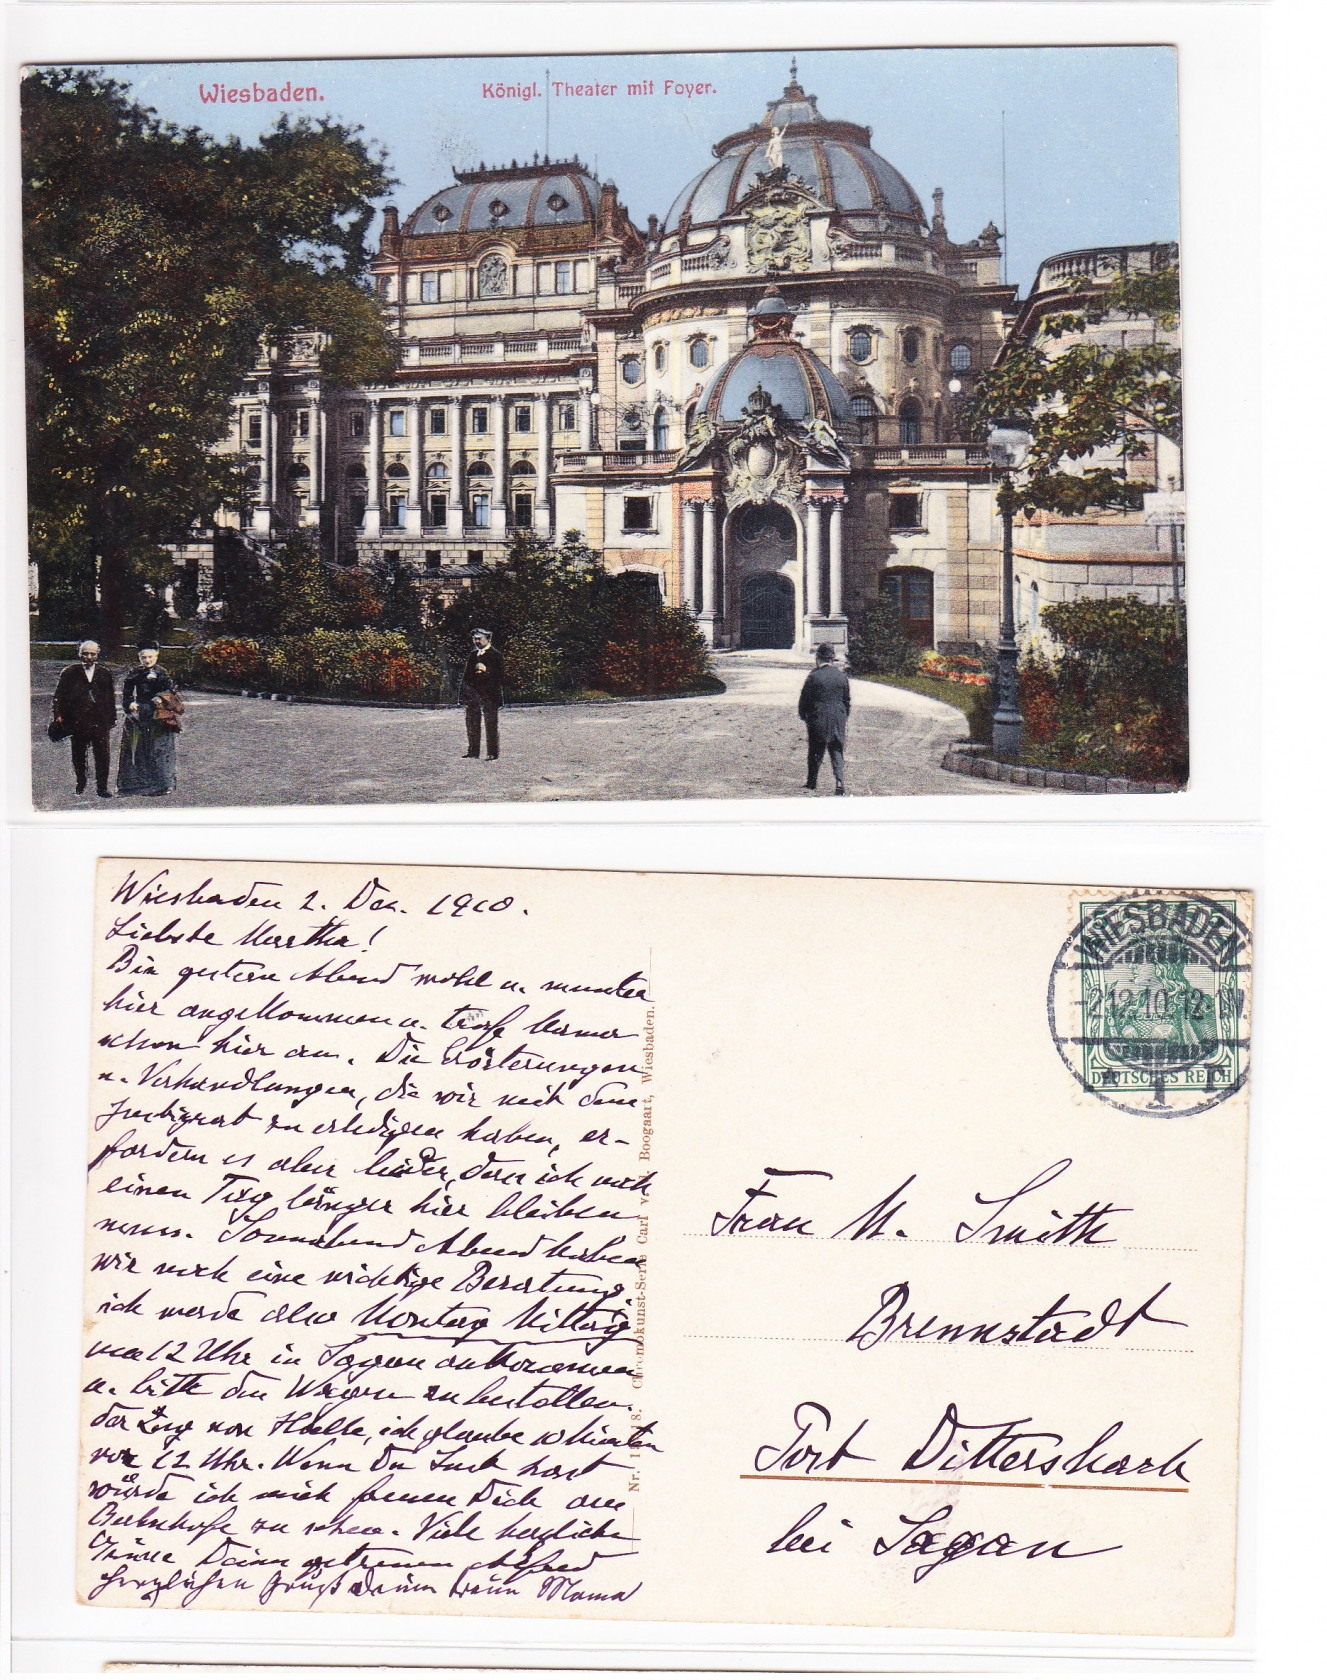 Wiesbaden.
Königl. Theater mit Foyer.
Wiesbaden 2. Dez. 1910.
Liebste Martha!
Bin gestern Abend wohl u. munter
hier angekommen u. traf Mama
schon hier an. Die Erörterungen
u. Verhandlungen, die wir mit dem
Justizrat zu erledigen haben, er-
fordern es aber leider, dass ich noch
einen Tag länger hier bleiben
muss. Sonnabend Abend haben
wir noch eine wichtige Beratung,
ich werde also Montag Mittag
um 12 Uhr in Sagan ankommen
u. bitte den Wagen zu bestellen.
der Zug von Halle, ich glaube 10 Minuten
vor 12 Uhr. Wenn Du Lust hast
würde ich mich freuen Dich am
Bahnhofe zu sehen. Viele herzliche
Grüsse Deinen getreuen Alfred
Herzlichen Gruß Deine Mama
Nr. Chromokunst-Serie Carl v. d. Boogaart, Wiesbaden.
WIESBADEN
-2.12.10.12-1N.
1
DEUTSCHES REICH
Frau M. Smith
Brennstadt
Post Dittersbach
bei Sagan